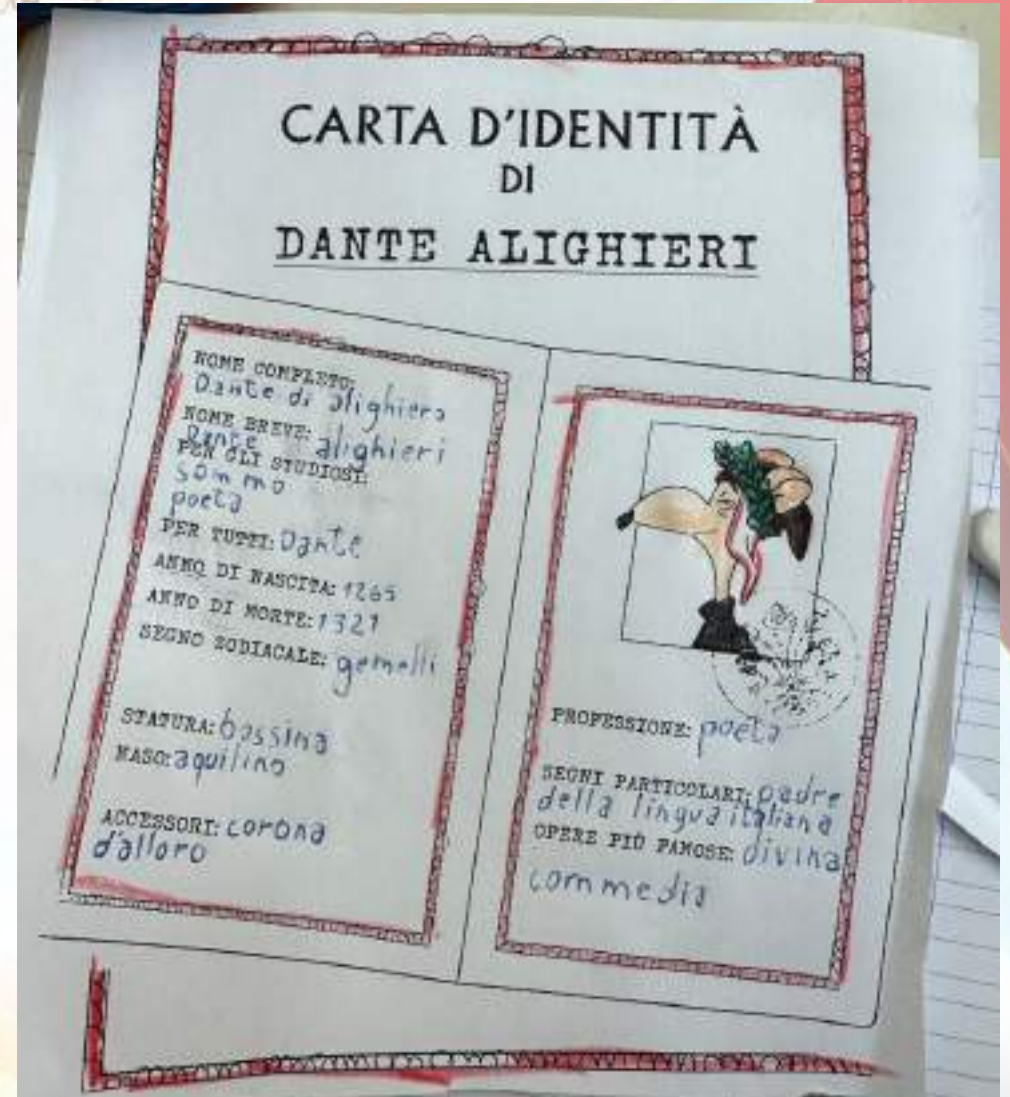 CARTA D'IDENTITÀ
DI
DANTE ALIGHIERI
NOME COMPLETO:
Dante di alighiero
NOME BREVE:
Dante alighieri
PER GLI STUDIOSI:
sommo
poeta
PER TUTTI: Dante
ANNO DI NASCITA: 1265
ANNO DI MORTE: 1321
SEGNO ZODIACALE: gemelli
STATURA: bassina
NASO: aquilino
ACCESSORI: corona
d'alloro
PROFESSIONE: poeta
SEGNI PARTICOLARI: padre
della lingua italiana
OPERE PIÙ FAMOSE: divina
commedia